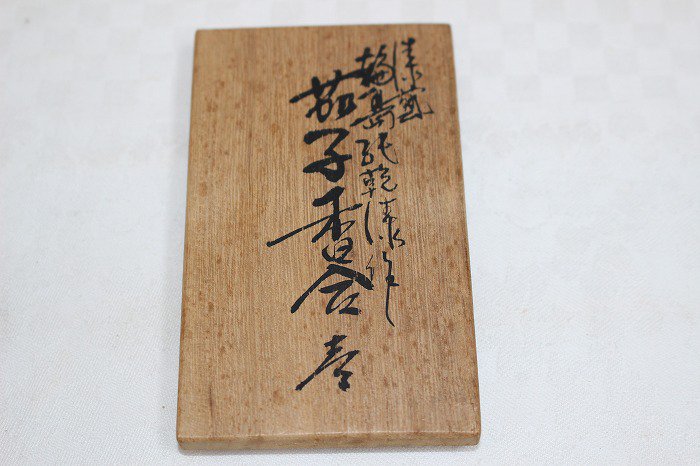 漆藝
輪島純乾漆作
茄子香合